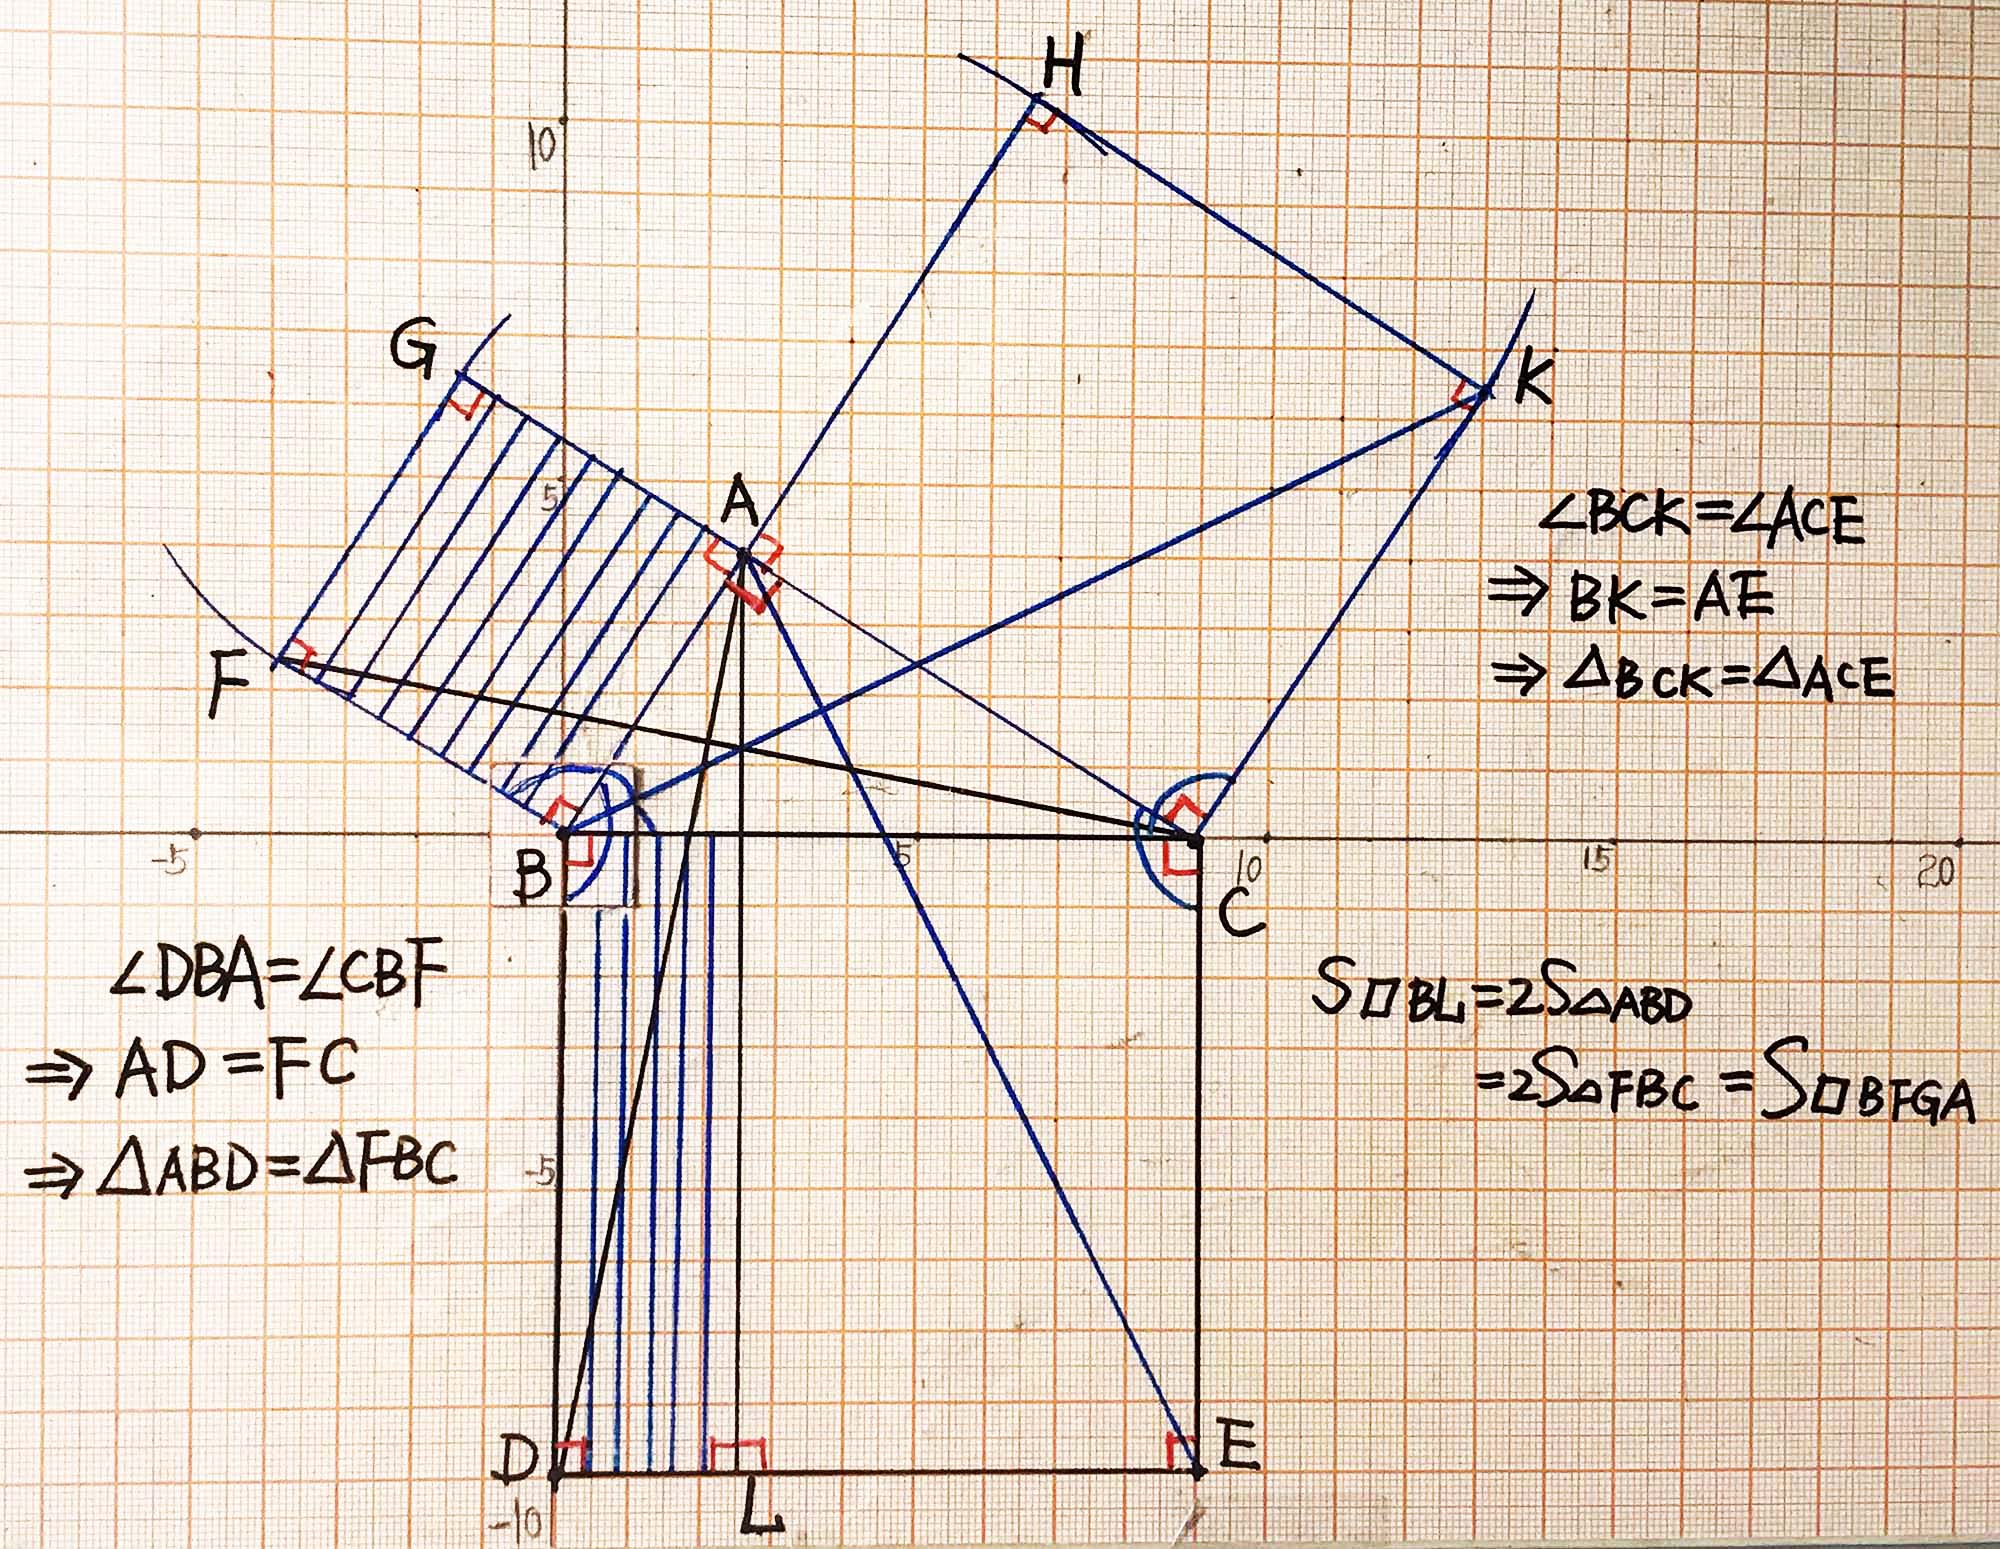 H
10
G
K
A
5
∠BCK=∠ACE
⇒ BK=AE
⇒ △BCK=△ACE
F
-5
B
5
10
15
20
C
∠DBA=∠CBF
⇒ AD=FC
⇒ △ABD=△FBC
S▱BL=2S△ABD
=2S△FBC=S▱BFGA
-5
D
E
L
-10